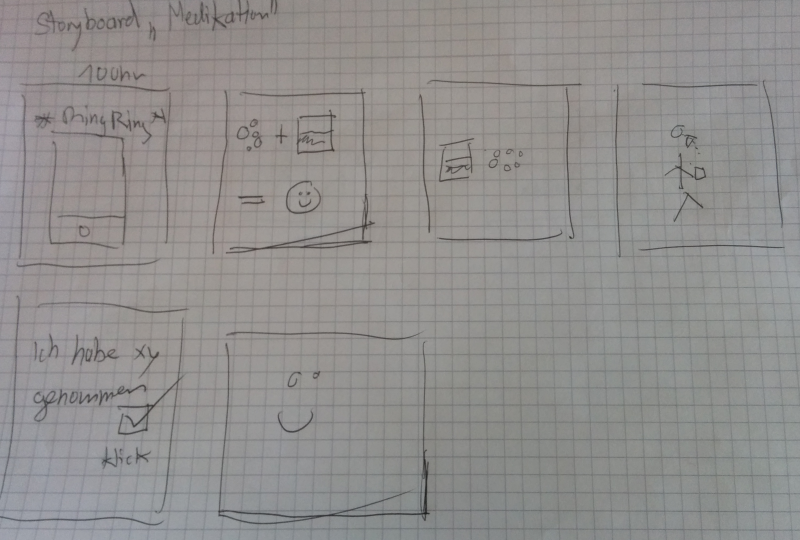 Storyboard „Medikation"
10 Uhr
* Ring Ring *
+
=
Ich habe xy
genommen
Klick